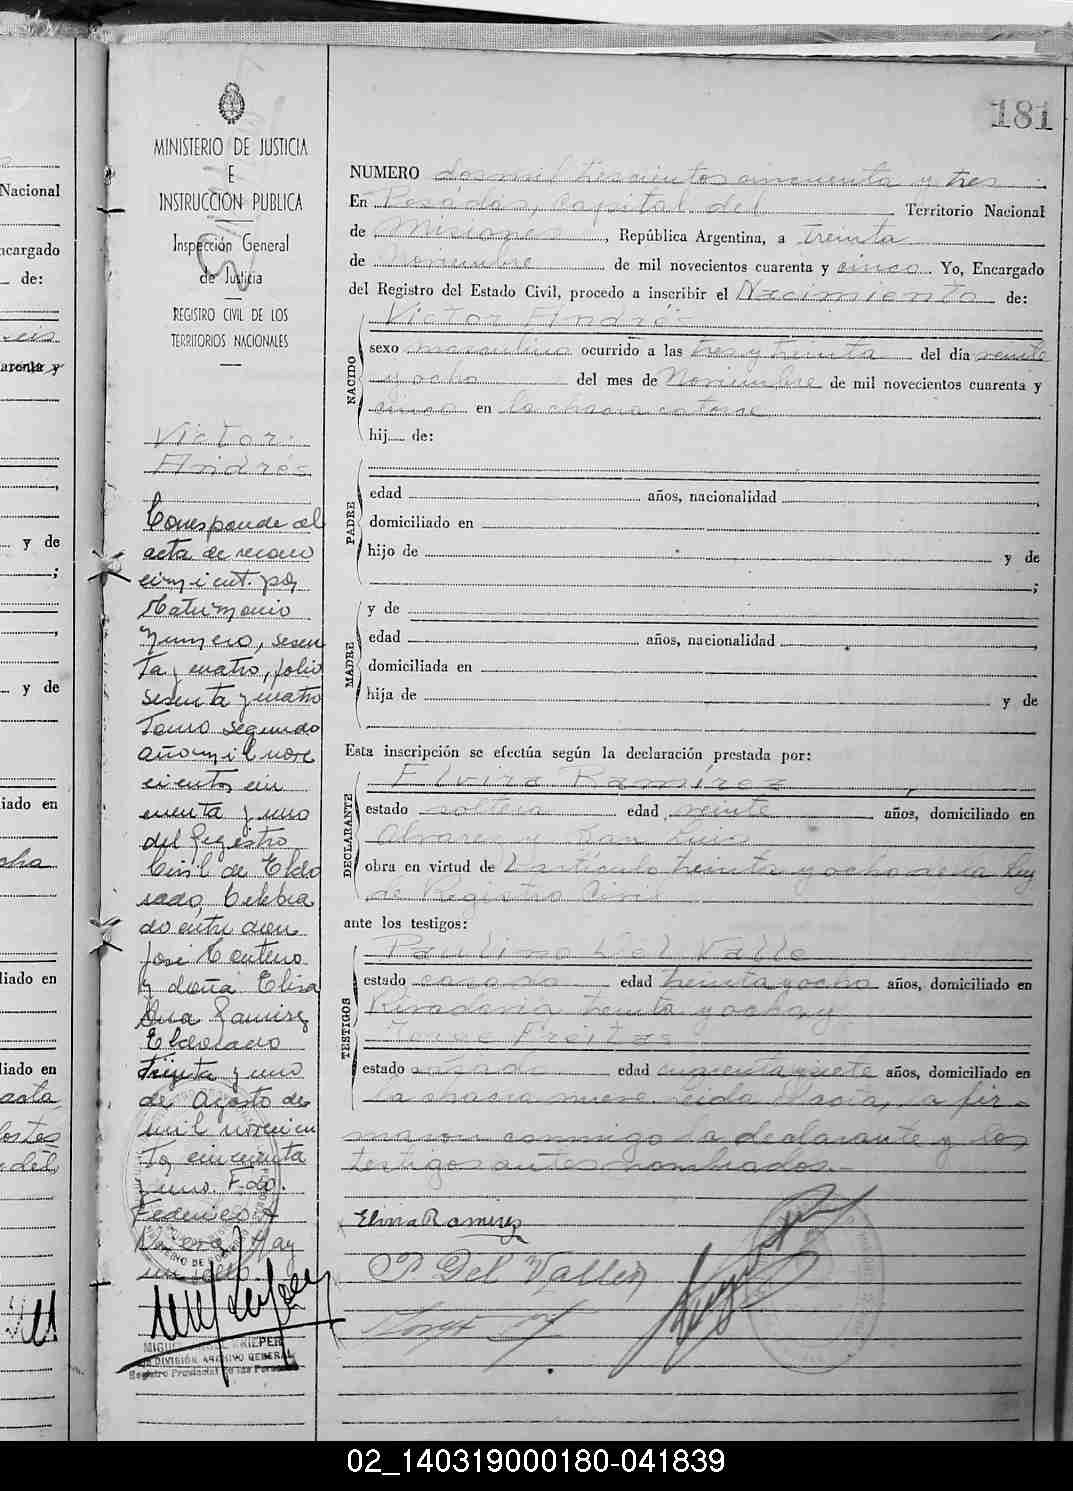 181
MINISTERIO DE JUSTICIA
E
INSTRUCCION PUBLICA
Inspección General
de Justicia
REGISTRO CIVIL DE LOS
TERRITORIOS NACIONALES
Victor
Andrés
Corresponde al
acta de recono
cimient. por
Matrimonio
Numero, sesen
ta y cuatro, folio
sesenta y cuatro
Tomo segundo
año mil nove
cientos cin
cuenta y uno
del Registro
Civil de Eldo
rado, Celebra
do entre don
José Centeno
y doña Elisa
Ana Ramirez
Eldorado
treinta y uno
de Agosto de
mil novecien
tos cincuenta
y uno. Fdo.
Federico A
NUMERO dosmil trescientos cincuenta y tres
En Posadas, Capital del Territorio Nacional
de Misiones, República Argentina, a treinta
de Noviembre de mil novecientos cuarenta y cinco. Yo, Encargado
del Registro del Estado Civil, procedo a inscribir el Nacimiento de:
Victor Andrés
NACIDO
sexo masculino ocurrido a las tres y treinta del día veinte
y ocho del mes de Noviembre de mil novecientos cuarenta y
cinco en la chacra catorce
hij de:
PADRE
edad años, nacionalidad
domiciliado en
hijo de y de
;
MADRE
y de
edad años, nacionalidad
domiciliada en
hija de y de
Esta inscripción se efectúa según la declaración prestada por:
DECLARANTE
Elvira Ramírez
estado soltera edad veinte años, domiciliado en
Alvarez y San Luis
obra en virtud de l articulo treinta y ocho de la Ley
de Registro Civil
ante los testigos:
TESTIGOS
Paulino Del Valle
estado casado edad treinta y ocho años, domiciliado en
Rivadavia treinta y ocho y
Jorge Freitas
estado casado edad cuarenta y siete años, domiciliado en
la chacra nueve. Leida el acta, la fir-
maron conmigo la declarante y los
testigos antes nombrados.-
Elvira Ramirez
P Del Valle
DIVISIÓN ARCHIVO GENERAL
Registro Provincial de las Personas
Nacional
Encargado
de:
y de
;
y de
liado en
liado en
liado en
02_140319000180-041839